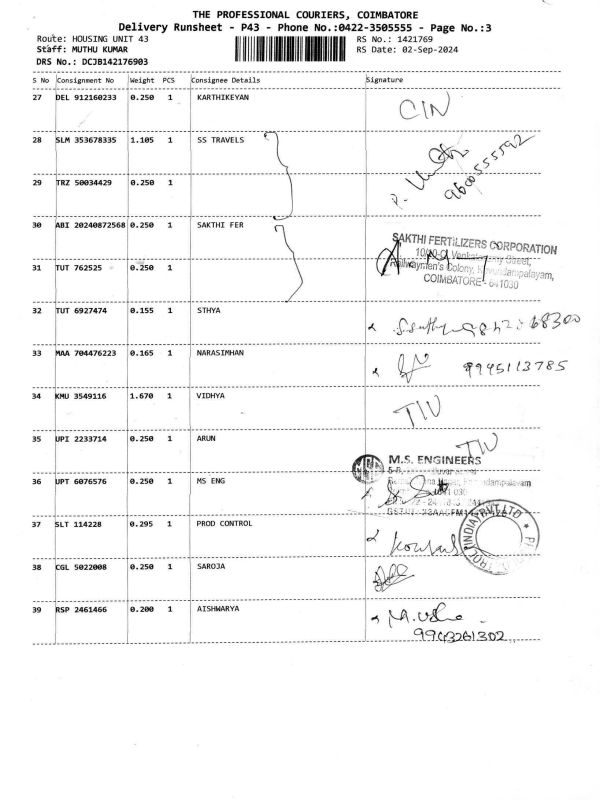 THE PROFESSIONAL COURIERS, COIMBATORE
Delivery Runsheet - P43 - Phone No.:0422-3505555 - Page No.:3
Route: HOUSING UNIT 43 RS No.: 1421769
Staff: MUTHU KUMAR RS Date: 02-Sep-2024
DRS No.: DCJB142176903
S No Consignment No Weight PCS Consignee Details Signature
27 DEL 912160233 0.250 1 KARTHIKEYAN CIN
28 SLM 353678335 1.105 1 SS TRAVELS
9600555592
29 TRZ 50034429 0.250 1
30 ABI 20240872568 0.250 1 SAKTHI FER
SAKTHI FERTILIZERS CORPORATION
Street,
31 TUT 762525 0.250 1
Railwaymen's Colony,
COIMBATORE - 641030
32 TUT 6927474 0.155 1 STHYA
33 MAA 704476223 0.165 1 NARASIMHAN 9945113785
34 KMU 3549116 1.670 1 VIDHYA TIN
35 UPI 2233714 0.250 1 ARUN TIN
M.S. ENGINEERS
36 UPT 6076576 0.250 1 MS ENG
37 SLT 114228 0.295 1 PROD CONTROL
38 CGL 5022008 0.250 1 SAROJA
39 RSP 2461466 0.200 1 AISHWARYA M. Usha
9903261302